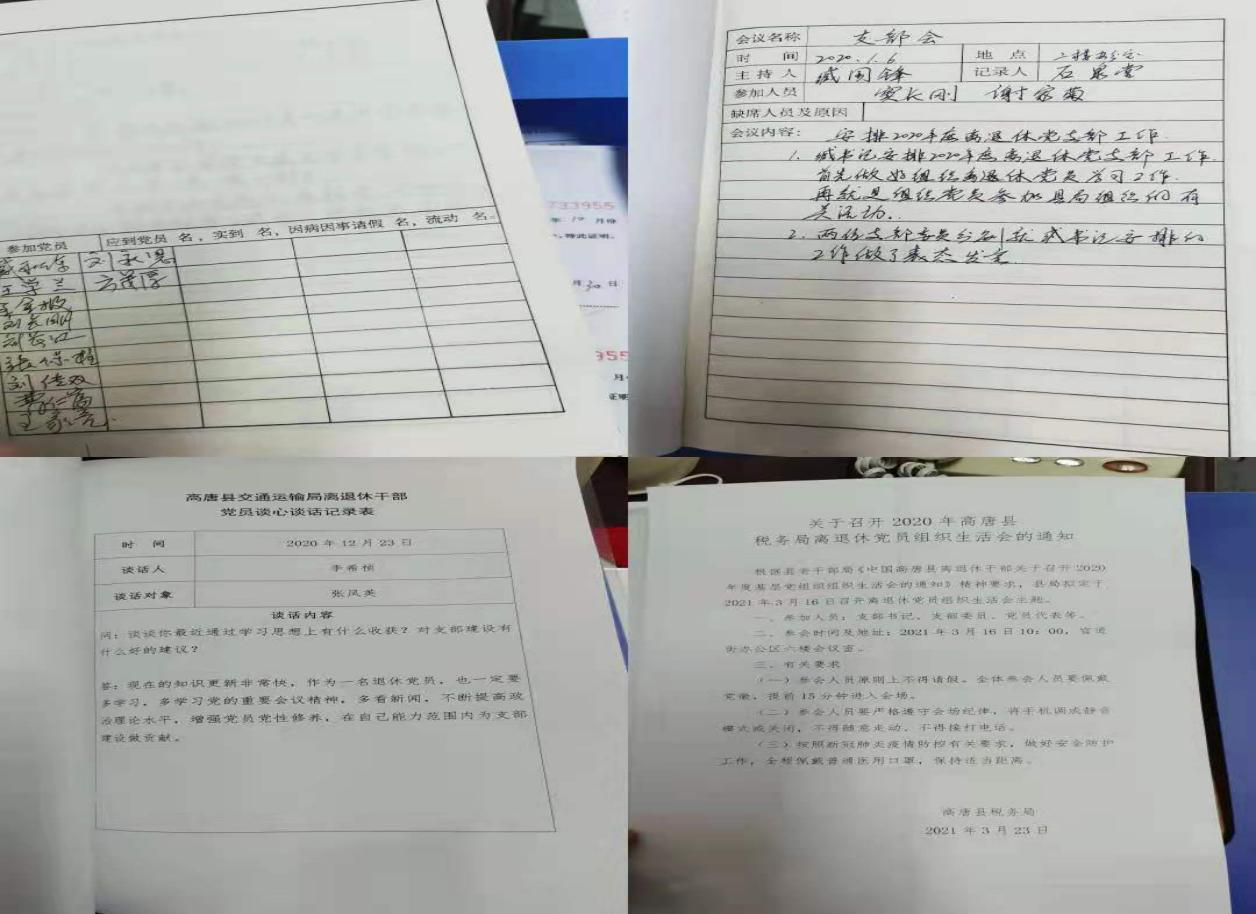 733955
年 10 月份
，特此证明。
月30日
955
参加党员
应到党员 名，实到 名，因病因事请假 名，流动 名。
刘长明
张保
刘佳双
会议名称 支部会
时 间 2020.1.6 地 点
主 持 人 臧国锋 记录人 石昃堂
参加人员 窦长刚 谢家菊
缺席人员及原因
会议内容： 安排2020年度离退休党支部工作
1. 臧书记安排2020年度离退休党支部工作.
首先做好组织离退休党员学习工作.
再就是组织党员参加县局组织的有
关活动..
2. 两位支部委员分别就臧书记安排的
工作做了表态发言
高唐县交通运输局离退休干部
党员谈心谈话记录表
时 间 2020 年 12 月 23 日
谈话人 李希桢
谈话对象 张凤英
谈话内容
问：谈谈你最近通过学习思想上有什么收获？对支部建设有
什么好的建议？
答：现在的知识更新非常快，作为一名退休党员，也一定要
多学习，多学习党的重要会议精神，多看新闻，不断提高政
治理论水平，增强党员党性修养，在自己能力范围内为支部
建设做贡献。
关于召开 2020 年高唐县
税务局离退休党员组织生活会的通知
根据县老干部局《中国高唐县离退休干部关于召开2020
年度基层党组织组织生活会的通知》精神要求，县局拟定于
2021年3月16日召开离退休党员组织生活会主题。
一、参加人员：支部书记、支部委员、党员代表等。
二、参会时间及地址：2021年3月16日10：00，官道
街办公区六楼会议室。
三、有关要求
（一）参会人员原则上不得请假。全体参会人员要佩戴
党徽，提前15分钟进入会场。
（二）参会人员要严格遵守会场纪律，将手机调成静音
模式或关闭，不得随意走动、不得接打电话。
（三）按照新冠肺炎疫情防控有关要求，做好安全防护
工作，全程佩戴普通医用口罩，保持适当距离。
高唐县税务局
2021 年 3 月 23 日